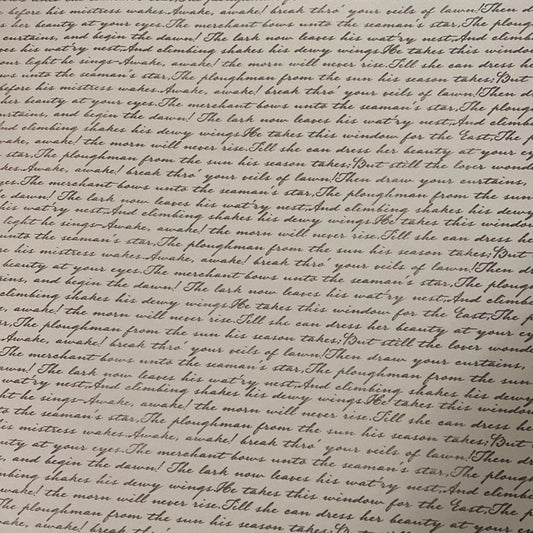 before his mistress wakes.Awake, awake! break thro' your veils of lawn!Then d
her beauty at your eyes.The merchant bows unto the seaman's star,The plough
curtains, and begin the dawn! The lark now leaves his wat'ry nest,And climbin
eaves his wat'ry nest,And climbing shakes his dewy wings.He takes this window
our light he sings-Awake, awake! the morn will never rise.Till she can dress her
ws unto the seaman's star,The ploughman from the sun his season takes;But
before his mistress wakes.Awake, awake! break thro' your veils of lawn!Then d
her beauty at your eyes.The merchant bows unto the seaman's star,The plough
urtains, and begin the dawn! The lark now leaves his wat'ry nest,And climbin
nd climbing shakes his dewy wings.He takes this window for the East,The p
wake, awake! the morn will never rise.Till she can dress her beauty at your e
star,The ploughman from the sun his season takes;But still the lover wonde
kes.Awake, awake! break thro' your veils of lawn!Then draw your curtains,
yes.The merchant bows unto the seaman's star,The ploughman from the sun
e dawn! The lark now leaves his wat'ry nest,And climbing shakes his dewy
his wat'ry nest,And climbing shakes his dewy wings.He takes this window
light he sings-Awake, awake! the morn will never rise.Till she can dress her
unto the seaman's star,The ploughman from the sun his season takes;But
re his mistress wakes.Awake, awake! break thro' your veils of lawn!Then d
beauty at your eyes.The merchant bows unto the seaman's star,The ploug
ains, and begin the dawn! The lark now leaves his wat'ry nest,And climbin
climbing shakes his dewy wings.He takes this window for the East,The p
e, awake! the morn will never rise.Till she can dress her beauty at your eye
r,The ploughman from the sun his season takes;But still the lover wonde
Awake, awake! break thro' your veils of lawn!Then draw your curtains,
The merchant bows unto the seaman's star,The ploughman from the sun
wn! The lark now leaves his wat'ry nest,And climbing shakes his dewy
wat'ry nest,And climbing shakes his dewy wings.He takes this window
ht he sings-Awake, awake! the morn will never rise.Till she can dress her
to the seaman's star,The ploughman from the sun his season takes;But
his mistress wakes.Awake, awake! break thro' your veils of lawn!Then dr
auty at your eyes.The merchant bows unto the seaman's star,The plough
, and begin the dawn! The lark now leaves his wat'ry nest,And climbin
mbing shakes his dewy wings.He takes this window for the East,The p
wake! the morn will never rise.Till she can dress her beauty at your eye
he ploughman from the sun his season takes;But still the lover wonde
ake, awake! break thro'